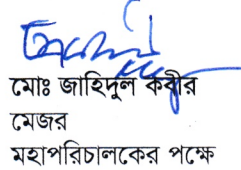 মোঃ জাহিদুল কবীর
মেজর
মহাপরিচালকের পক্ষে